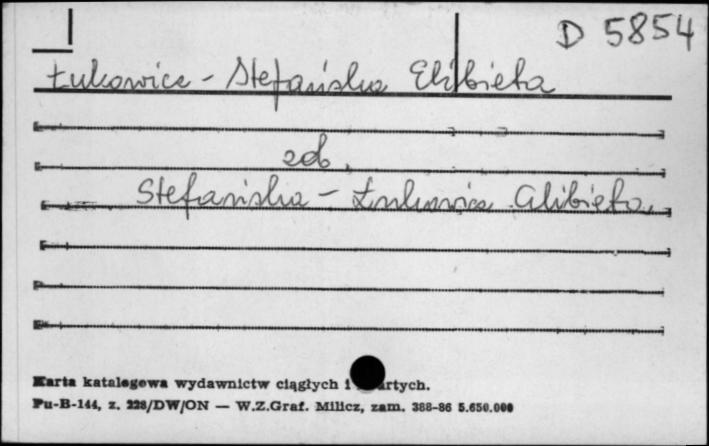 D 5854
Łukowicz - Stefańska Elżbieta
zob.
Stefańska - Łukowicz Elżbieta
Karta katalogowa wydawnictw ciągłych i zwartych.
Pu-B-144, z. 228/DW/ON — W.Z.Graf. Milicz, zam. 388-86 5.650.000